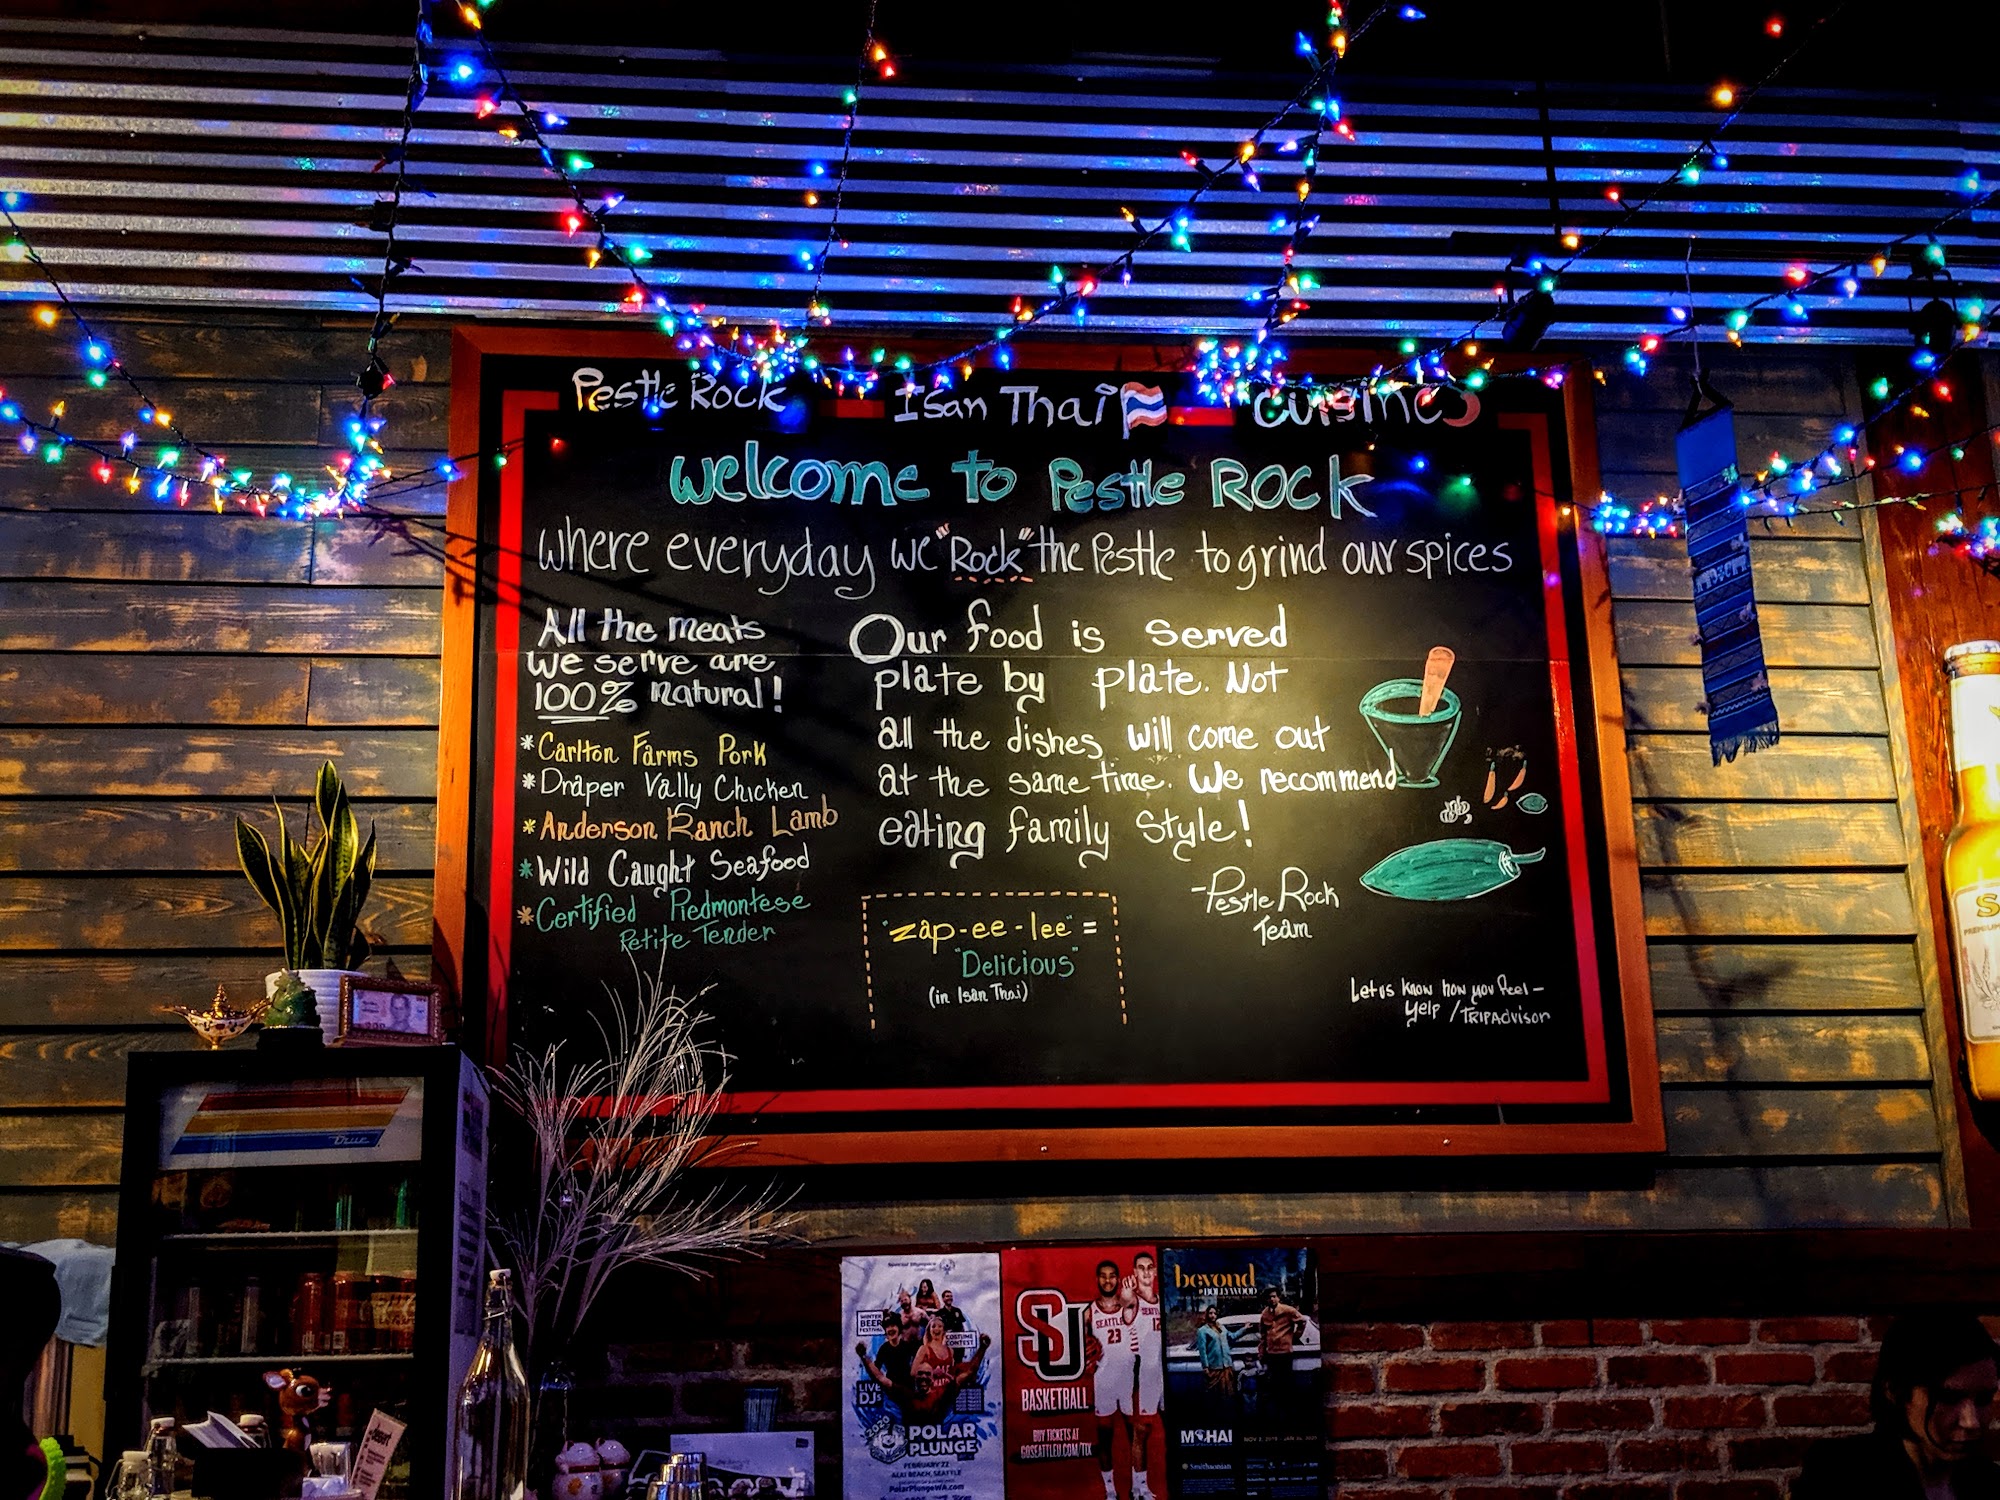 Pestle Rock Isan Thai Cuisine
Welcome to Pestle Rock
where everyday we "Rock" the Pestle to grind our spices
All the meats
we serve are
100% natural!
*Carlton Farms Pork
*Draper Vally Chicken
*Anderson Ranch Lamb
*Wild Caught Seafood
*Certified Piedmontese
Petite Tender
Our food is served
plate by plate. Not
all the dishes will come out
at the same time. We recommend
eating family style!
-Pestle Rock
Team
"zap-ee-lee" =
"Delicious"
(in Isan Thai)
Let us know how you feel -
Yelp / TRIPAdvisor
true
Special Olympics
WINTER
BEER
FESTIVAL
COSTUME
CONTEST
LIVE
DJs
2020
POLAR
PLUNGE
FEBRUARY 22
ALKI BEACH, SEATTLE
PolarPlungeWA.com
SU
SEATTLE
23
BASKETBALL
BUY TICKETS AT
GOSEATTLEU.COM/TIX
beyond
BOLLYWOOD
MOHAI
Smithsonian